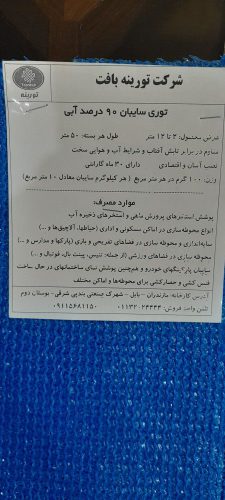 شرکت تورینه بافت
تورینه
توری سایبان ۹۰ درصد آبی
عرض محصول: ۲ تا ۱۲ متر طول هر بسته: ۵۰ متر
مقاوم در برابر تابش آفتاب و شرایط آب و هوایی سخت
نصب آسان و اقتصادی دارای ۳۰ ماه گارانتی
وزن: ۱۰۰ گرم در هر متر مربع ( هر کیلوگرم سایبان معادل ۱۰ متر مربع)
موارد مصرف:
پوشش استخرهای پرورش ماهی و استخرهای ذخیره آب
انواع محوطه سازی در اماکن مسکونی و اداری (حیاطها، آلاچیق‌ها و ...)
سایه‌اندازی و محوطه سازی در فضاهای تفریحی و بازی (پارکها و مدارس و ...)
محوطه سازی در فضاهای ورزشی (از جمله: تنیس، پینت بال، فوتبال و ...)
سایبان پارکینگهای خودرو و همچنین پوشش نمای ساختمانهای در حال ساخت
فنس کشی و حصارکشی برای محوطه‌ها و اماکن مختلف
آدرس کارخانه: مازندران - بابل - شهرک صنعتی بندپی شرقی- بوستان دوم
تلفن واحد فروش: ۰۱۱۳۲۰۲۴۴۴۴ - ۰۹۱۱۵۶۸۱۱۵۰